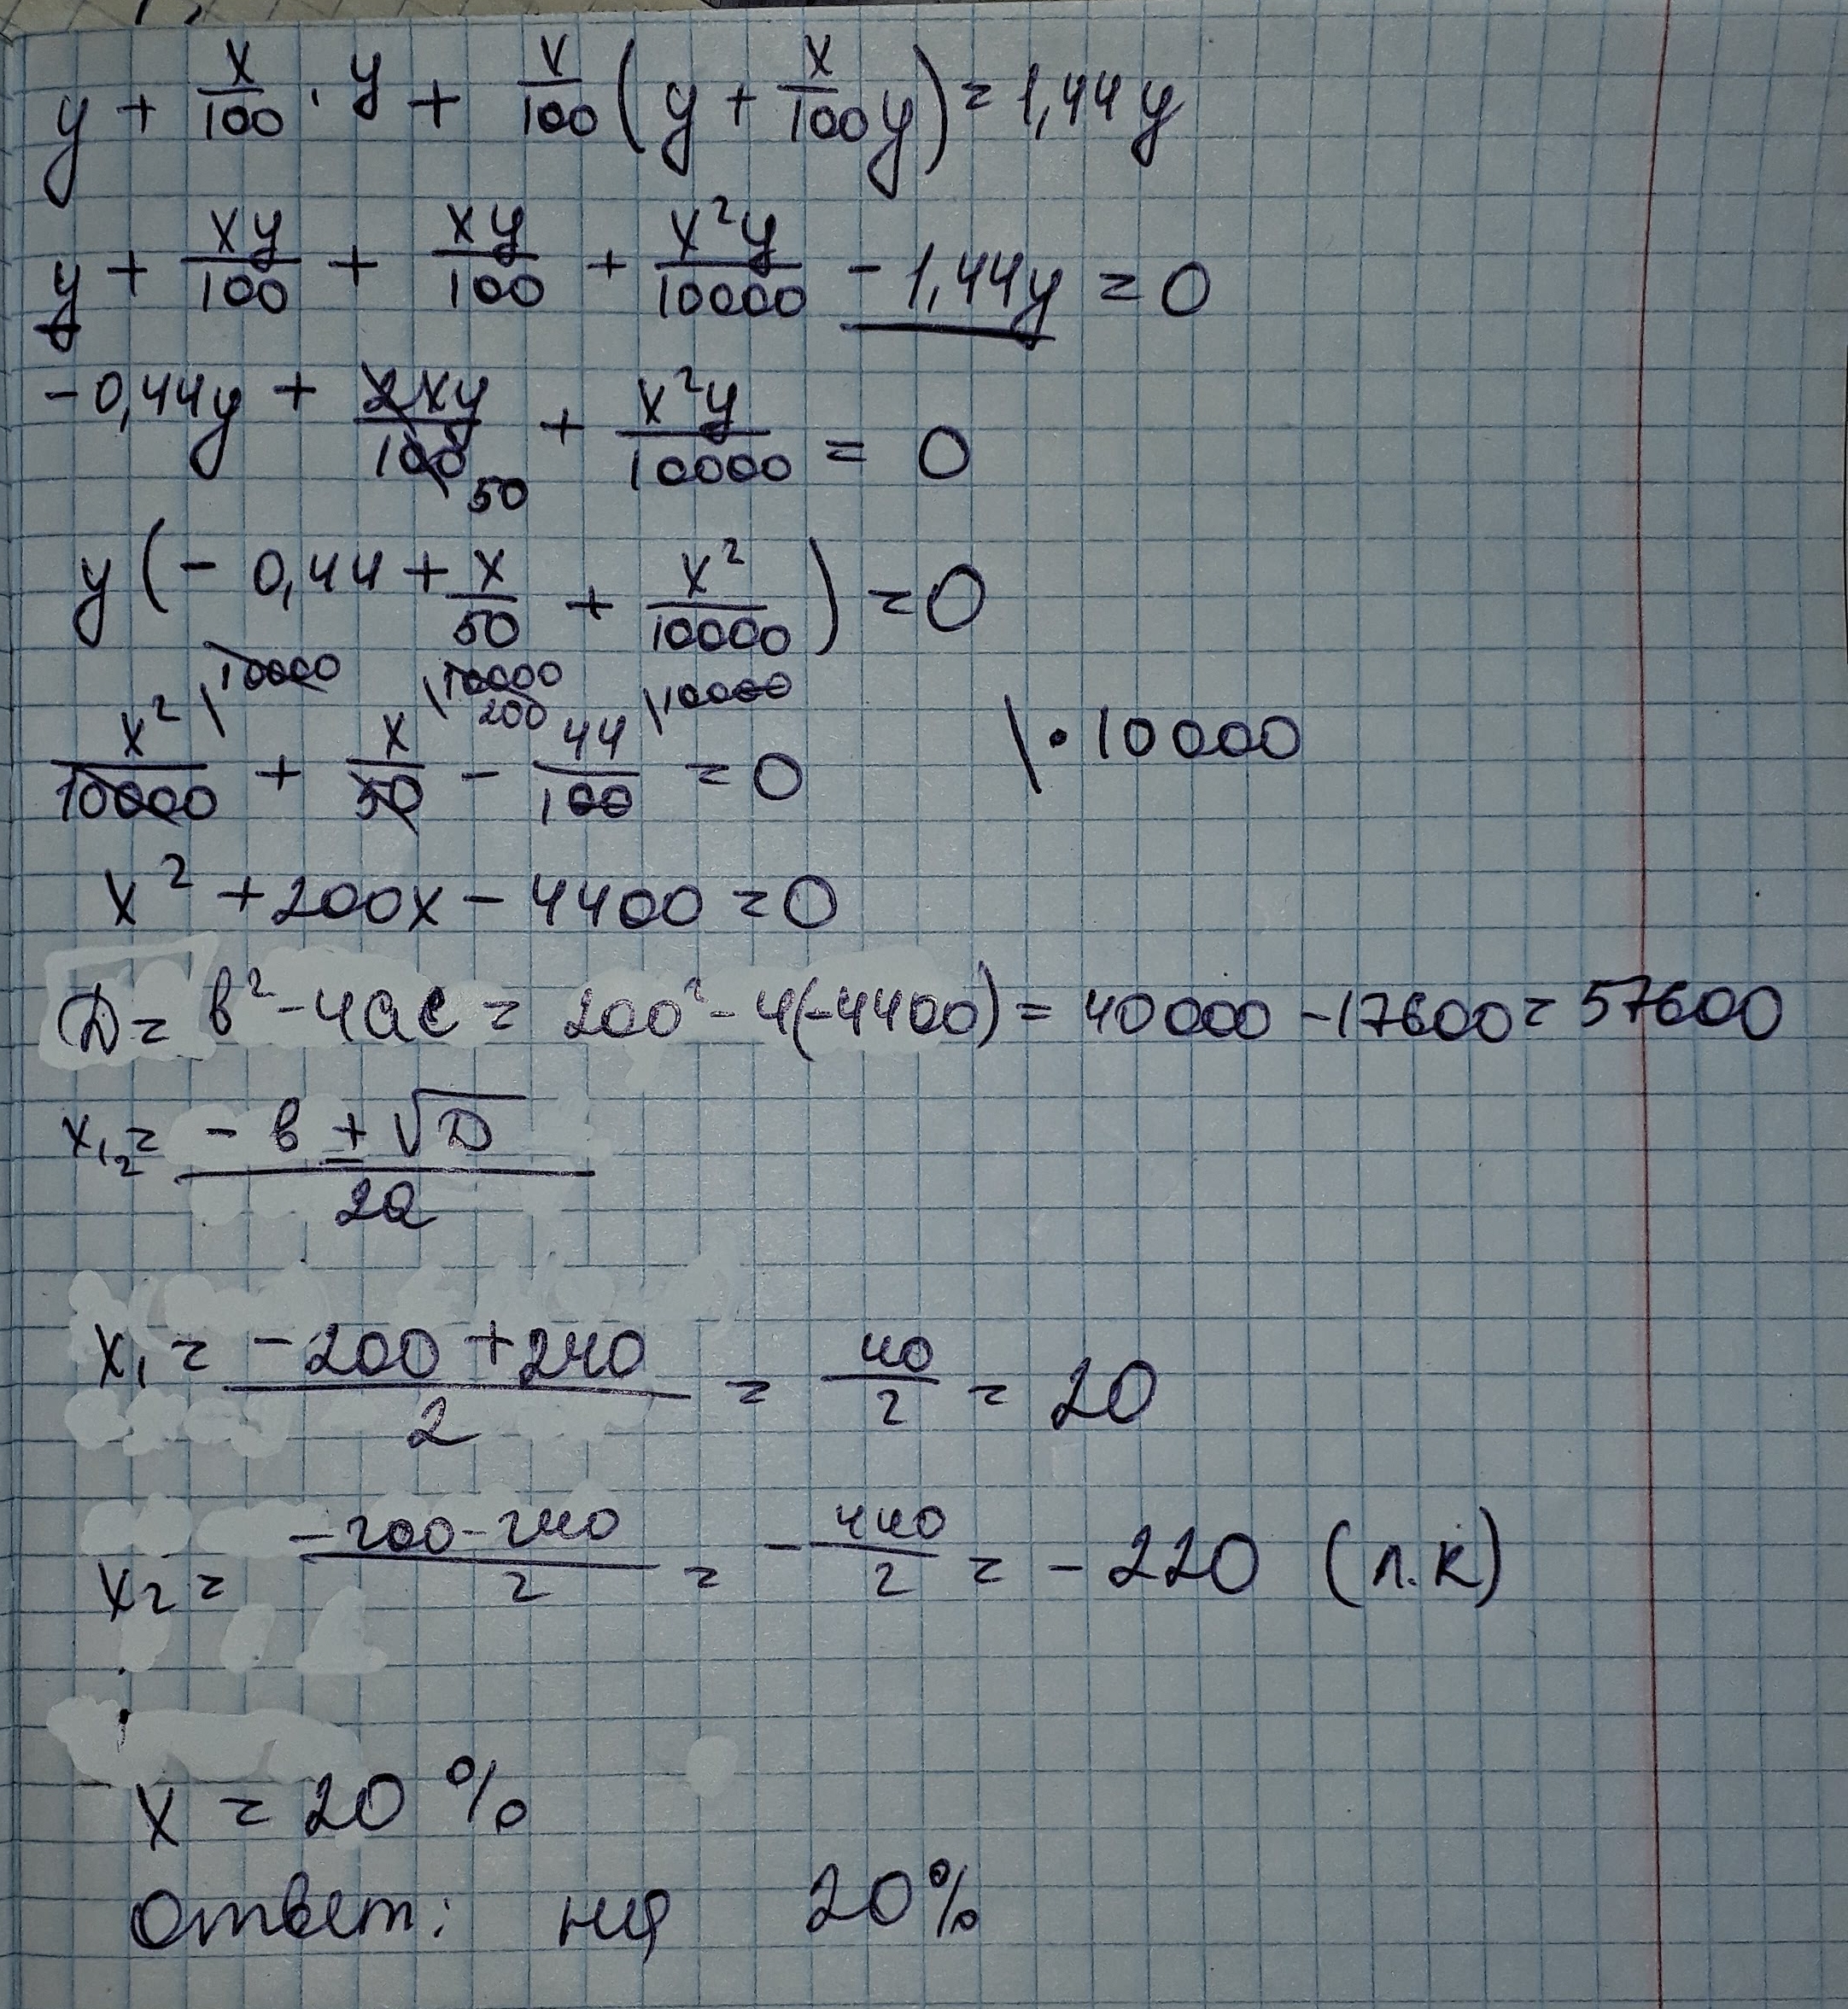 y + x/100 · y + x/100 (y + x/100 y) = 1,44y
y + xy/100 + xy/100 + x²y/10000 - 1,44y = 0
-0,44y + 2xy/100 50 + x²y/10000 = 0
y(-0,44 + x/50 + x²/10000) = 0
x²/10000 \10000 + x/50 \10000 200 - 44/100 \10000 = 0 \·10000
x² + 200x - 4400 = 0
D = в² - 4ac = 200² - 4(-4400) = 40000 - 17600 = 57600
x₁,₂ = -в ± √D / 2a
x₁ = -200 + 240 / 2 = 40/2 = 20
x₂ = -200 - 240 / 2 = -440/2 = -220 (п.к)
x = 20 %
Ответ: на 20%